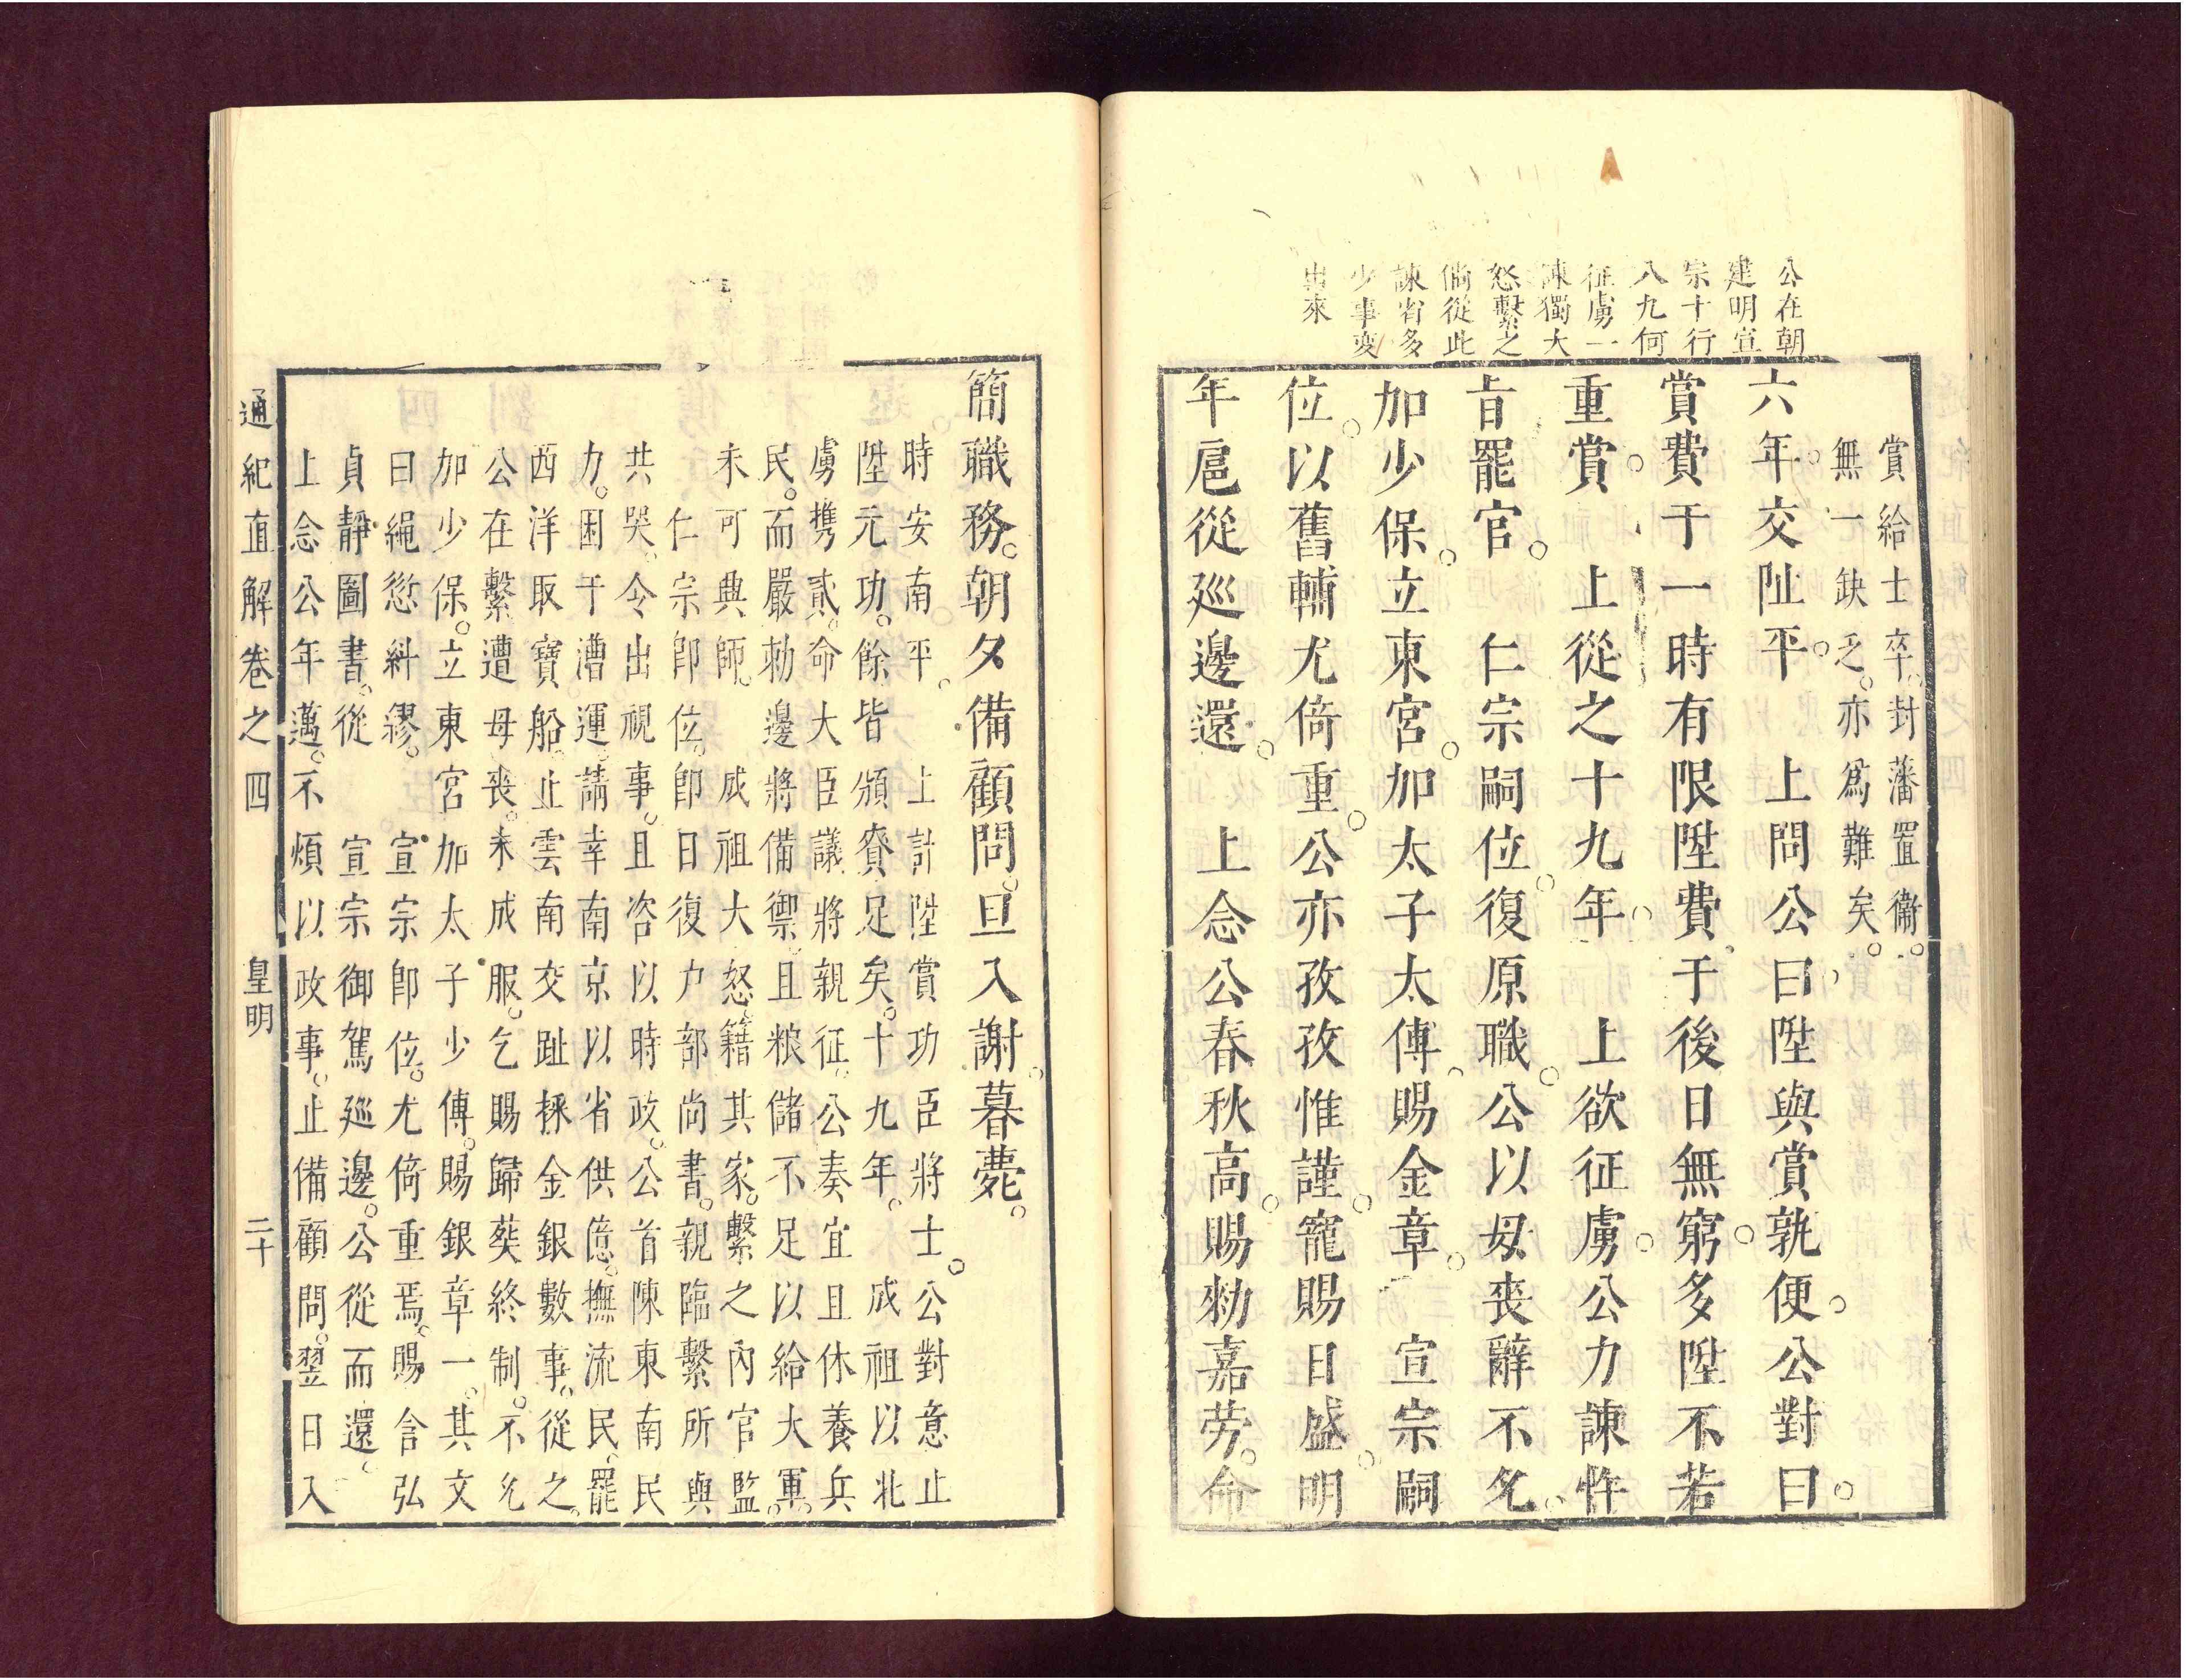 公在朝
建明宣
宗十行
八九何
征虜一
諫獨大
怒繫之
倘從此
諫省多
少事变
出來
賞給士卒。封藩置衞。
無一缺乏。亦爲難矣。
六年。交阯平。　上問公曰。陞與賞孰便。公對曰。
賞費于一時有限。陞費于後日無窮。多陞不若
重賞。　上從之。十九年。　上欲征虜。公力諫忤
旨罷官。　仁宗嗣位。復原職。公以母喪辭不允。
加少保。立東宮。加太子太傅。賜金章。　宣宗嗣
位。以舊輔尤倚重。公亦孜孜惟謹。寵賜日盛。明
年扈從廵邊還。　上念公春秋高。賜勑嘉劳。命
簡職務。朝夕備顧問。旦入謝。暮薨。
時安南平。　上計陞賞功臣將士。公對意止
陞元功。餘皆頒賚足矣。十九年。　成祖以北
虜携貳。命大臣議將親征。公奏宜且休養兵
民。而嚴勑邊將備禦。且粮儲不足以給大軍。
未可典師。　成祖大怒。籍其家。繫之內官監。
仁宗卽位。卽日復户部尚書。親臨繫所與
共哭。令出視事。且咨以時政。公首陳東南民
力。困于漕運。請幸南京以省供億。撫流民。罷
西洋取寶船。止雲南交趾採金銀數事。從之。
公在繫遭母喪。未成服。乞賜歸葬終制。不允。
加少保。立東宮加太子少傅。賜銀章一。其文
曰繩愆糾繆。　宣宗卽位。尤倚重焉。賜含弘
貞靜圖書。從　宣宗御駕廵邊。公從而還。
上念公年邁。不煩以政事。止備顧問。翌日入
通紀直解卷之四　皇明　二十